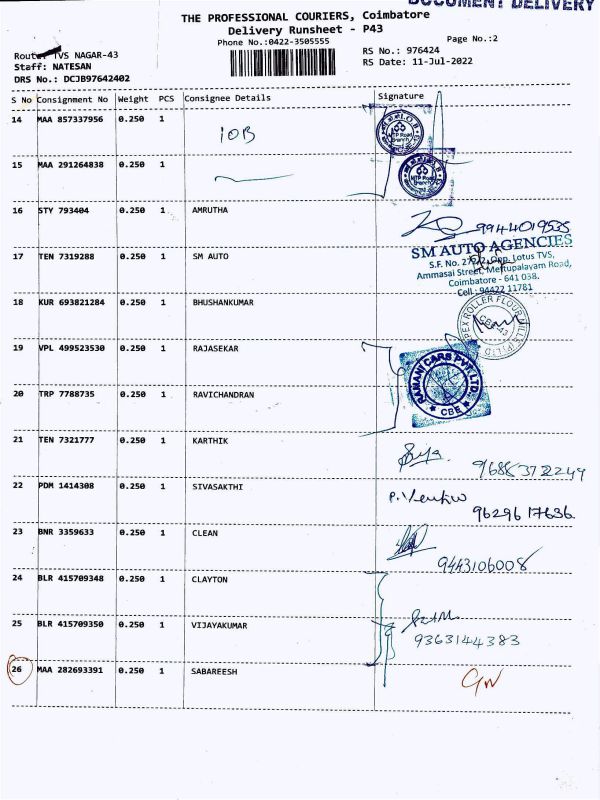 DOCUMENT DELIVERY
THE PROFESSIONAL COURIERS, Coimbatore
Delivery Runsheet - P43
Phone No.:0422-3505555
Page No.:2
Route: TVS NAGAR-43
RS No.: 976424
Staff: NATESAN
RS Date: 11-Jul-2022
DRS No.: DCJB97642402
S No Consignment No Weight PCS Consignee Details Signature
14 MAA 857337956 0.250 1 IOB
I.O.B
MTP Road
Branch
15 MAA 291264838 0.250 1
MTP Road
Branch
16 STY 793404 0.250 1 AMRUTHA
9944019535
17 TEN 7319288 0.250 1 SM AUTO
SM AUTO AGENCIES
S.F. No. Opp. Lotus TVS,
Ammasai Street, Mettupalayam Road,
Coimbatore - 641 038.
Cell : 94422 11781
18 KUR 693821284 0.250 1 BHUSHANKUMAR
APEX ROLLER FLOUR MILLS (P) LTD
CBE-43
19 VPL 499523530 0.250 1 RAJASEKAR
RAMANI CARS PVT. LTD.
CBE
20 TRP 7788735 0.250 1 RAVICHANDRAN
21 TEN 7321777 0.250 1 KARTHIK
9688372249
22 PDM 1414308 0.250 1 SIVASAKTHI
P. Venku
9629617636
23 BNR 3359633 0.250 1 CLEAN
9443106008
24 BLR 415709348 0.250 1 CLAYTON
25 BLR 415709350 0.250 1 VIJAYAKUMAR
9363144383
26 MAA 282693391 0.250 1 SABAREESH